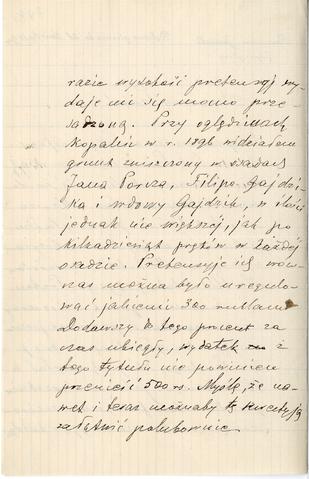 razie wysokość pretensyj wy-
daje mi się mocno prze-
sadzoną. Przy oględzinach
kopalń w r. 1896 widziałem
grunt zniszczony w osadach
Jana Porcza, Filipa Gajdzi-
ka i wdowy Gajdzik, w ilości
jednak nie większej, jak po
kilkadziesiąt prętów w każdej
osadzie. Pretensyje ich wów-
czas można było uregulo-
wać jakiemi 300 rublami
Dodawszy do tego procent za
czas ubiegły, wydatek z
tego tytułu nie powinien
przenieść 500 rs. Myślę, że na-
wet i teraz możnaby tę kwestyję
załatwić polubownie.